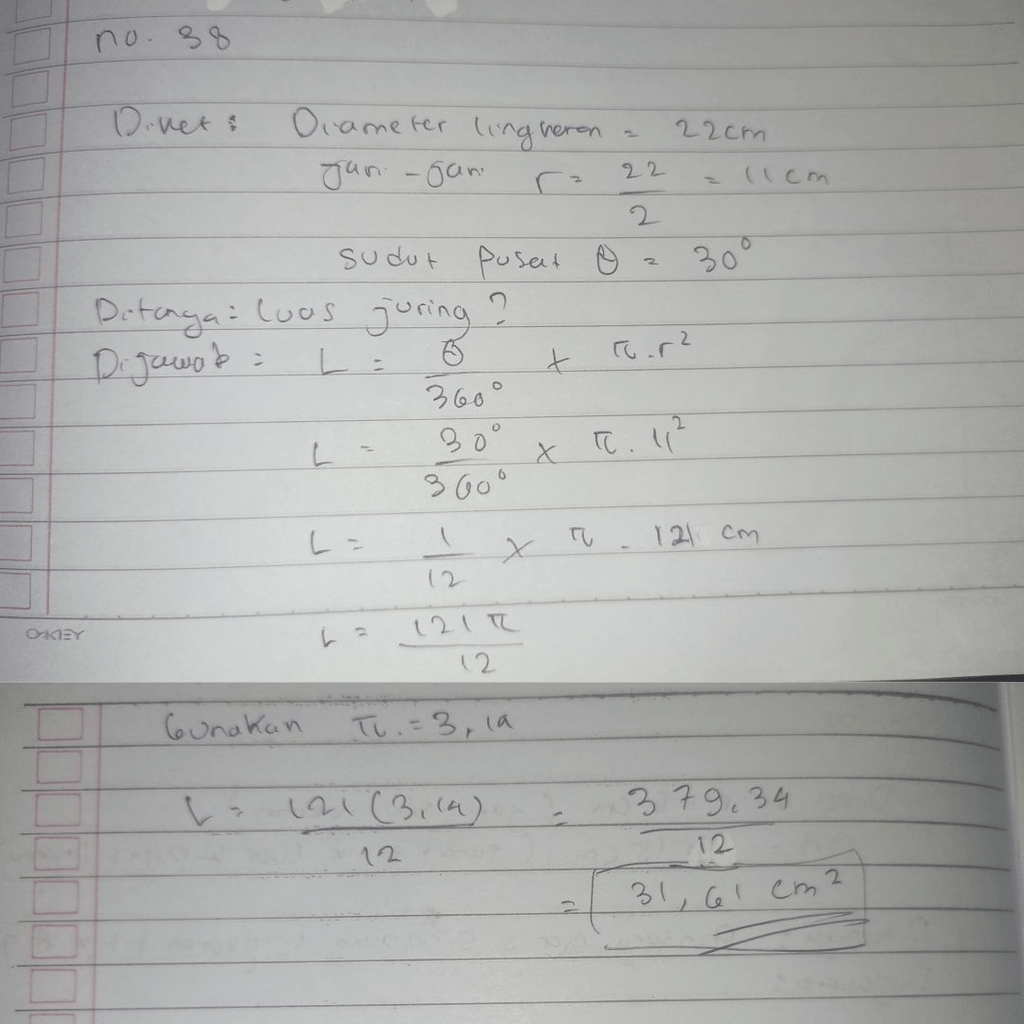 no. 38
Diket : Diameter lingkaran = 22cm
Jari - Jari r = 22/2 = 11 cm
Sudut Pusat θ = 30°
Ditanya : Luas juring ?
Dijawab : L = θ/360° × π.r²
L = 30°/360° × π. 11²
L = 1/12 × π . 121 cm
L = 121 π/12
OAKLEY
Gunakan π. = 3,14
L = 121 (3,14)/12 = 379,34/12
= 31,61 cm²